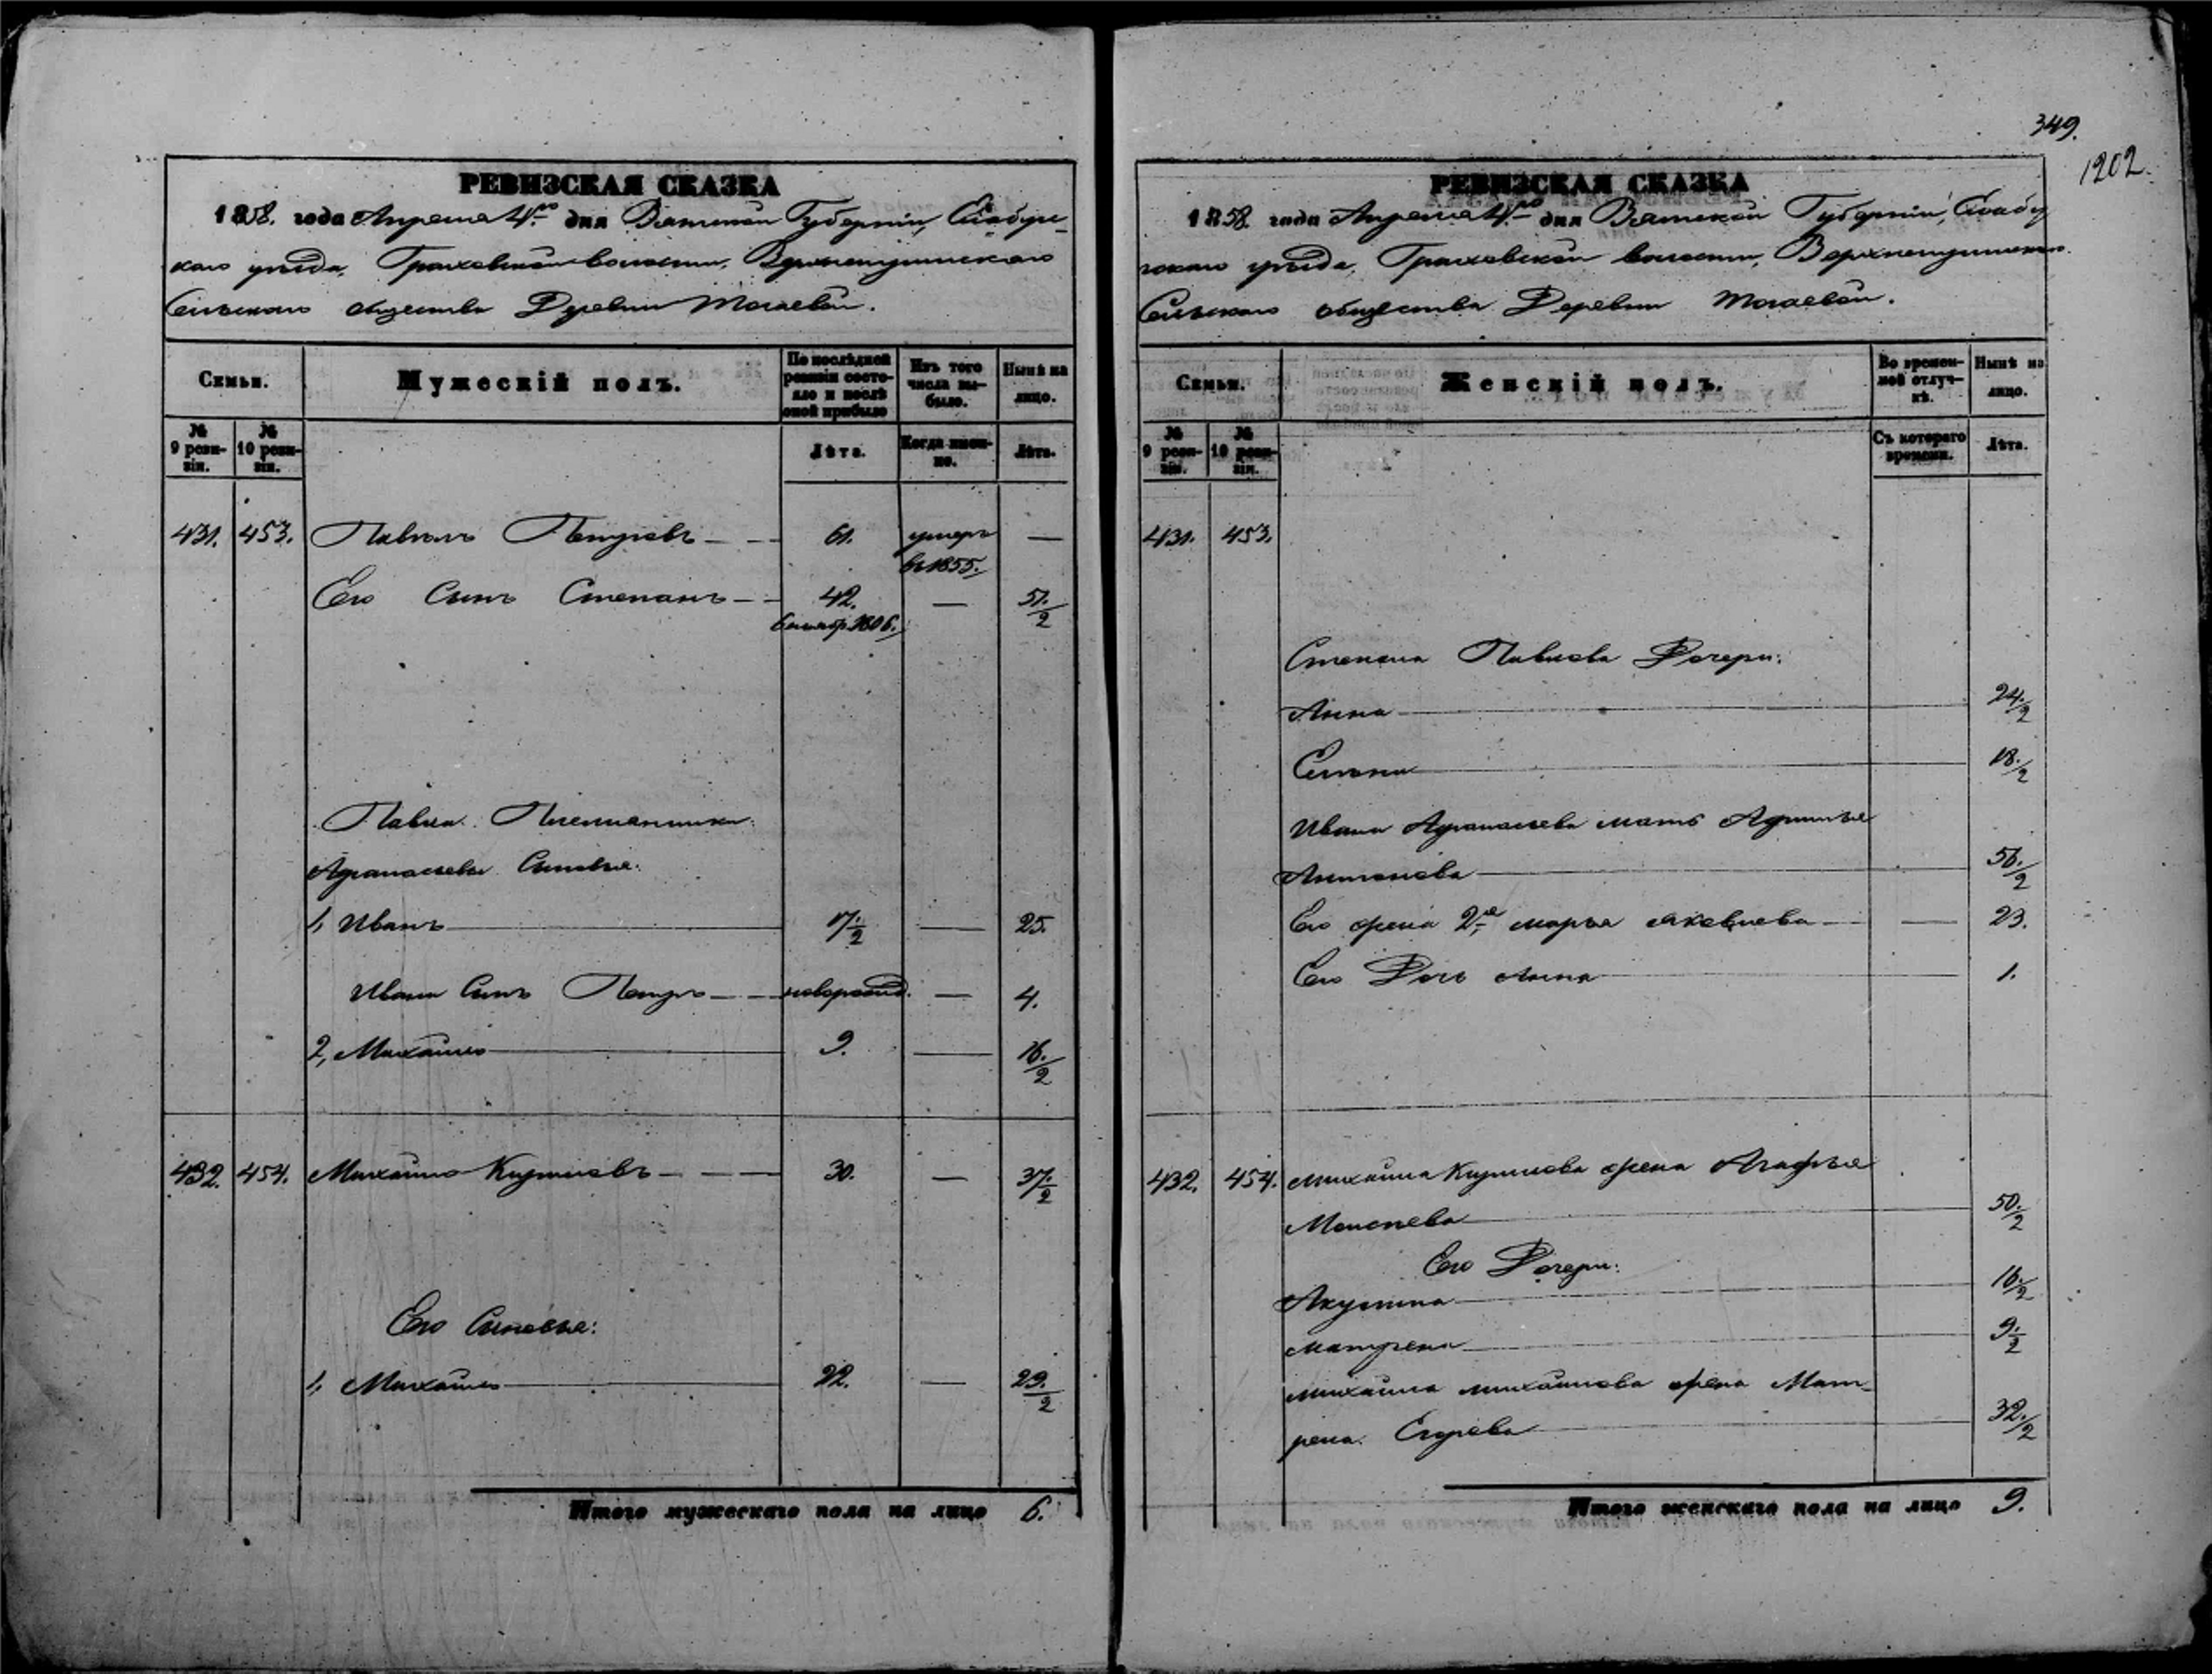 349.
1202.
РЕВИЗСКАЯ СКАЗКА
1858. года Апреля 4го дня Вятской Губерніи, Елабуж-
скаго уѣзда, Граховской волости, Верхне
Сельскаго общества Деревни Тогаевой.
Семьи.
Мужескій полъ.
По послѣдней ревизіи состояло и послѣ оной прибыло
Изъ того числа выбыло.
Нынѣ на лицо.
№ 9 ревизіи.
№ 10 ревизіи.
Лѣта.
Когда именно.
Лѣта.
431. 453. Павелъ Петровъ 61. умеръ —
въ 1855.
Его Сынъ Степанъ 42. — 51. 1/2
1806.
Павла Племянники:
Афанасьевы Сыновья:
1, Иванъ 17. 1/2 — 25.
Ивана Сынъ Петръ новорожд. — 4.
2, Михайло 9. — 16. 1/2
432. 454. Михайло Кириловъ 30. — 37. 1/2
Его Сыновья:
1, Михайло 22. — 29. 1/2
Итого мужескаго пола на лицо 6.
РЕВИЗСКАЯ СКАЗКА
1858. года Апреля 4го дня Вятской Губерніи, Елабу
жскаго уѣзда, Граховской волости, Верхне
Сельскаго общества Деревни Тогаевой.
Семьи.
Женскій полъ.
Во временной отлучкѣ.
Нынѣ на лицо.
№ 9 ревизіи.
№ 10 ревизіи.
Съ котораго времени.
Лѣта.
431. 453.
Степана Павлова Дочери:
Анна 24. 1/2
Елена 18. 1/2
Ивана Афанасьева мать
Антонова 56. 1/2
Его жена 2я Марья Яковлева — 23.
Его Дочь Анна 1.
432. 454. Михайла Кирилова жена Агафья
Моисеева 50. 1/2
Его Дочери:
Акулина 16. 1/2
Матрена 9. 1/2
Михайла Михайлова жена Мат-
рена Егорева 32. 1/2
Итого женскаго пола на лицо 9.